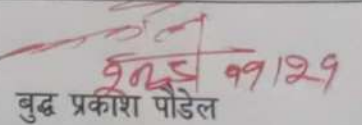 ११।२१
बुद्ध प्रकाश पौडेल